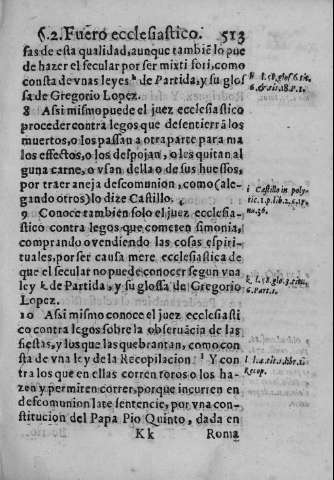 §.2. Fuero ecclesiastico. 513
sas de esta qualidad, aunque tambiē lo pue
de hazer el secular por ser mixti fori, como
consta de vnas leyes h de Partida, y su glos
sa de Gregorio Lopez.
8 Assi mismo puede el juez ecclesiastico
proceder contra legos que desentierrā los
muertos, o los passan a otra parte para ma
los effectos, o los despojan, o les quitan al
guna carne, o vsan della o de sus huessos,
por traer aneja descomunion, como (ale-
gando otros) lo dize Castillo. i
9 Conoce tambien solo el juez ecclesia-
stico contra legos que cometen simonia,
comprando o vendiendo las cosas espiri-
tuales, por ser causa mere ecclesiastica de
que el secular no puede conocer segun vna
ley k de Partida, y su glossa de Gregorio
Lopez.
10 Assi mismo conoce el juez ecclesiasti
co contra legos sobre la obseruācia de las
fiestas, y los que las quebrantan, como con
sta de vna ley de la Recopilacion l Y con
tra los que en ellas corren toros o los ha-
zen y permiten correr, porque incurren en
descomunion late sententie, por vna con-
stitucion del Papa Pio Quinto, dada en
Kk Roma
h l. 58. glos. 6. tit.
6. &
18. P. 1.
i Castillo in poly-
tic. 1. p. lib. 2. c. 17.
nu. 36.
k l. 58. glo. 3. titu.
6. Part. 1.
l l. 4. tit. 1. lib. 1.
Recop.